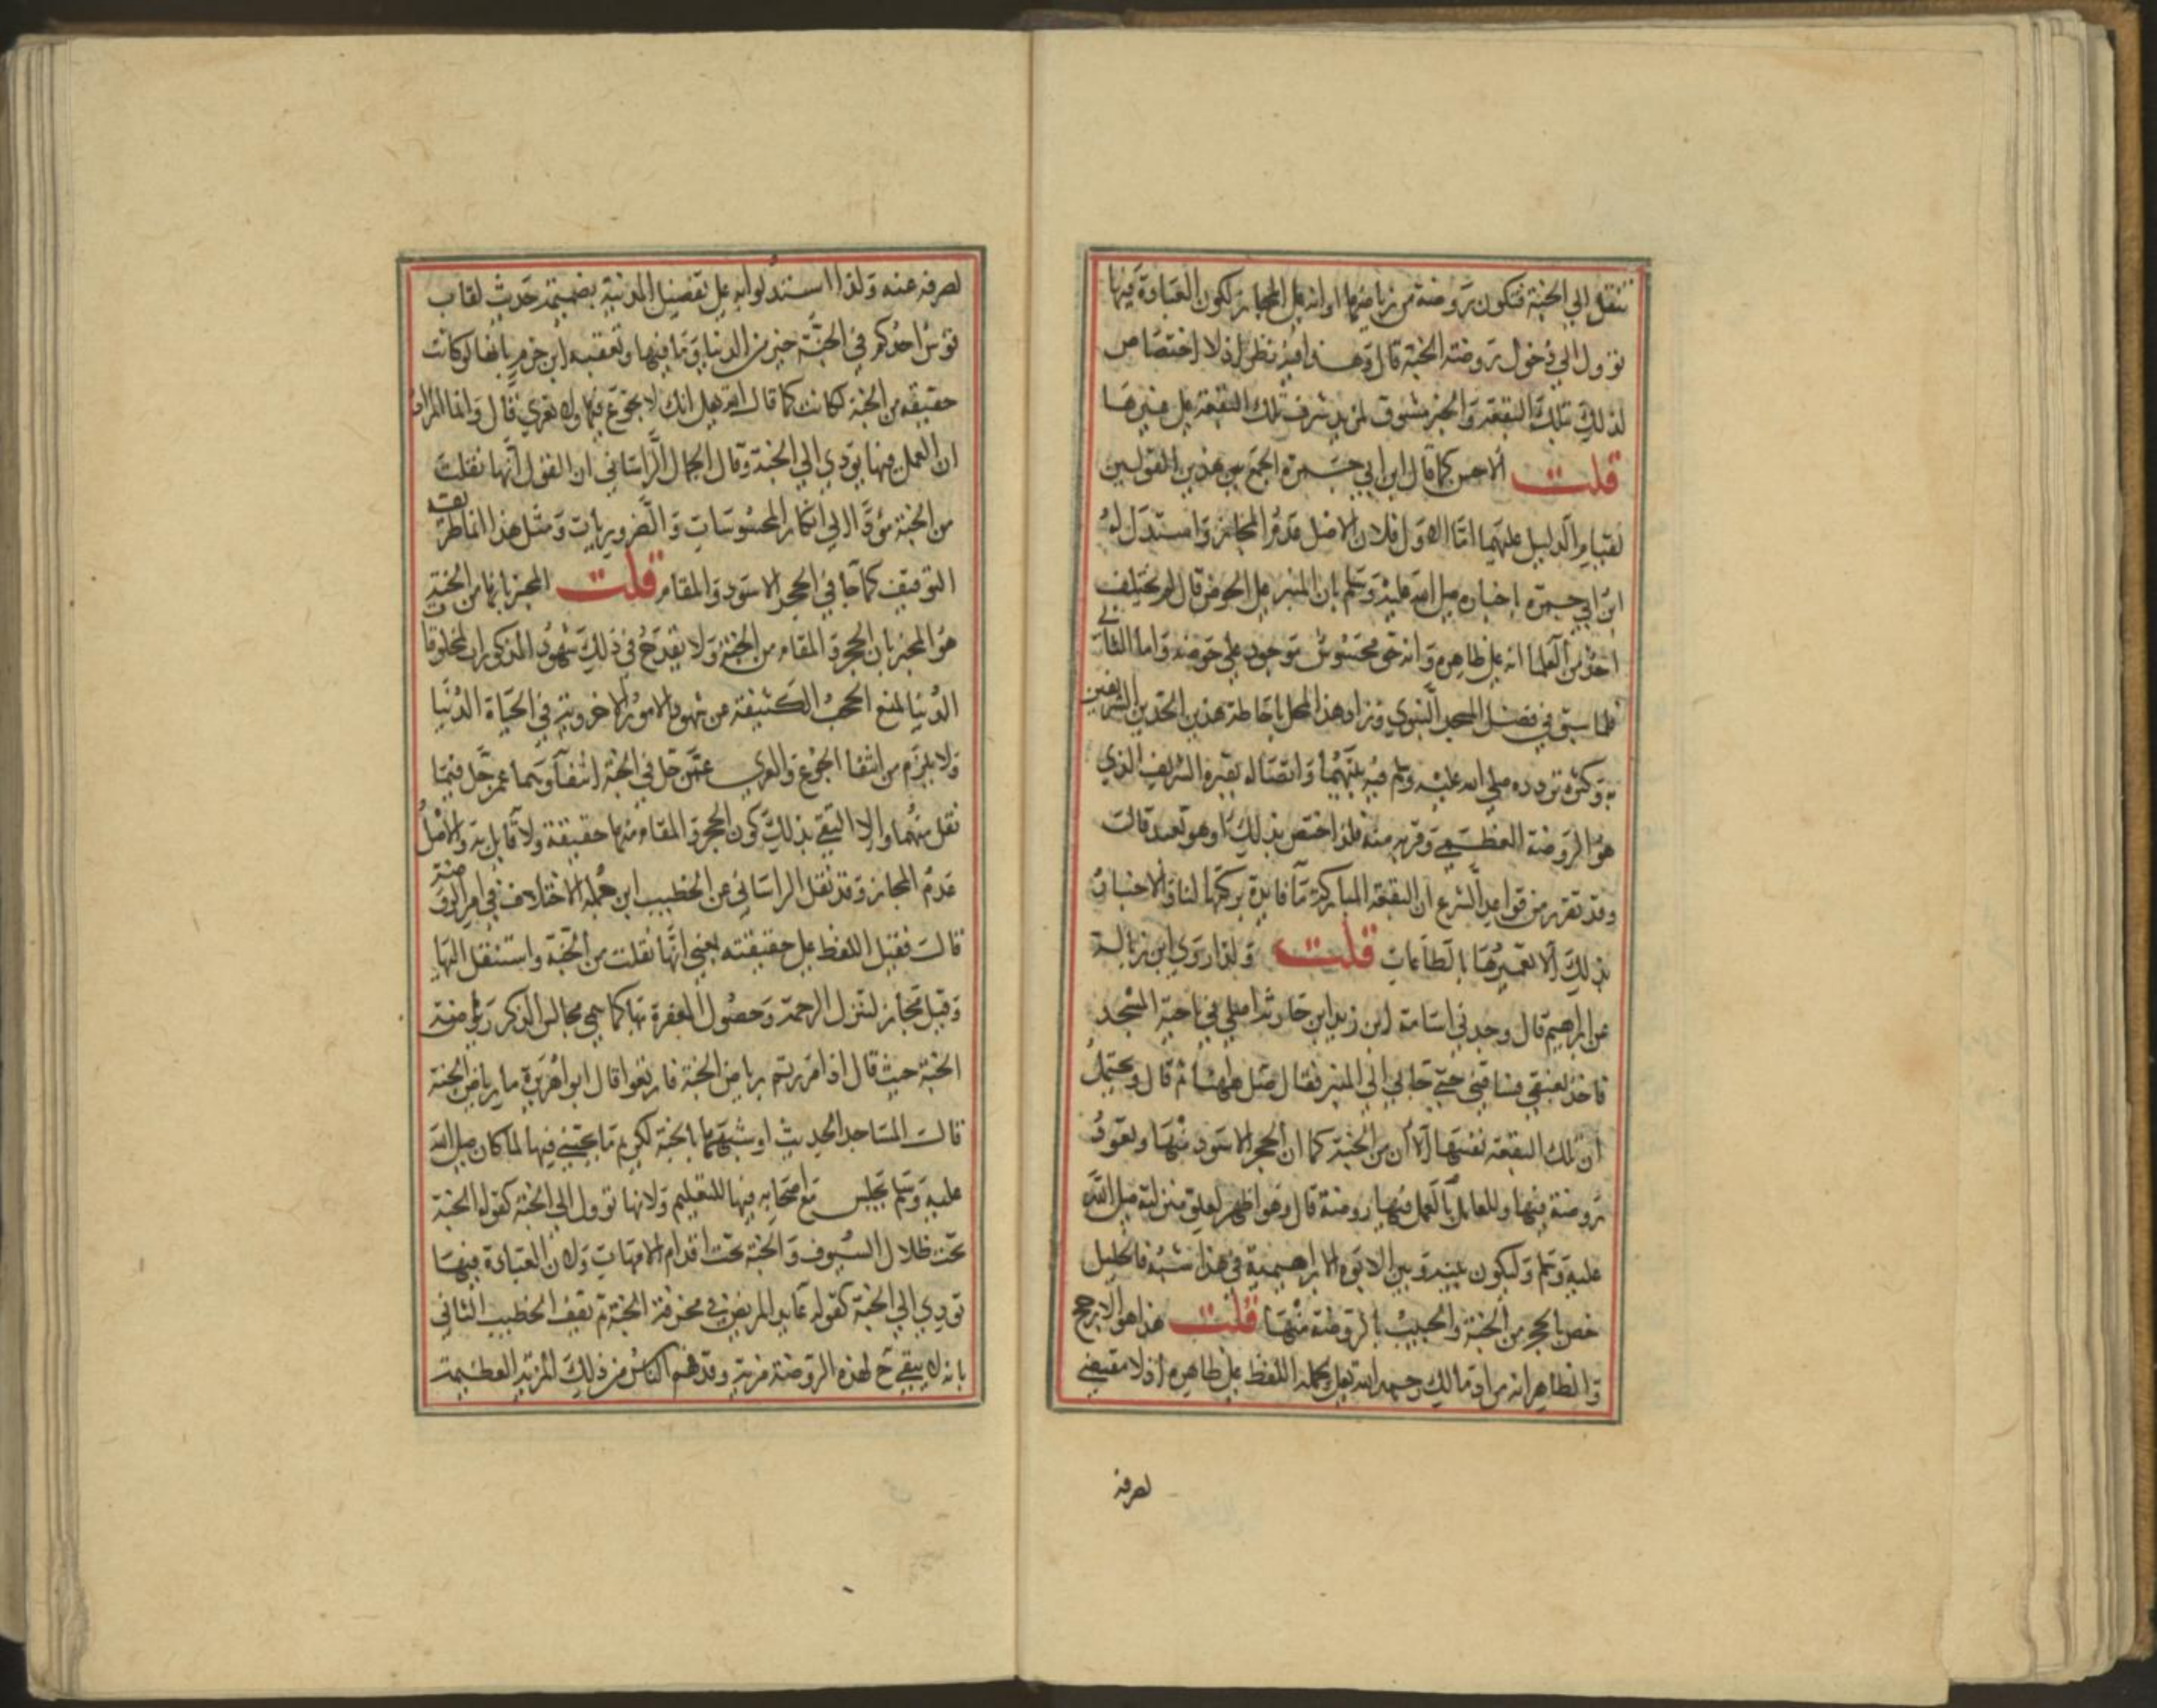 تنقل الي الجنة فتكون روضة من رياضها او انه علي المجاز لكون العبادة فيها
تؤول الي دخول روضة الجنة قال وهذا فيه نظر اذ لا اختصاص
لذلك بتلك البقعة والخبر مسوق لمزيد شرف تلك البقعة علي غيرها
قلت الاحسن كما قال ابن ابي جمرة الجمع بين هذين القولين
لقيام الدليل عليهما اما الاول فلان الاصل عدم المجاز واستدل له
ابن ابي جمرة باخباره صلي الله عليه وسلم بان المنبر علي الحوض قال لم يختلف
احد من العلما انه علي ظاهره وانه حق محسوس موجود علي حوضه واما الثاني
فلما سبق في فضل المسجد النبوي وزاد هذا المحل باحاطة هذين الحدين الشريفين
به وكثرة تردده صلي الله عليه وسلم فيه بينهما واتصاله بقبره الشريف الذي
هو الروضة العظمي وقربه منه فلذا اختص بذلك او هو تعبد قالت
وقد تقرر من قواعد الشرع ان البقعة المباركة ما فايدة بركتها لنا والاخبار
بذلك الا تعميرها بالطاعات قلت ولذا روي ابن زبالة
عن ابراهيم قال وجدني اسامة ابن زيد ابن حارثة اصلي في ناحية المسجد
فاخذ بعنقي فساقني حتي جا بي الي المنبر فقال صل ههنا ثم قال ويحتمل
ان تلك البقعة نفسها الان من الجنة كما ان الحجر الاسود منها وتعود
روضة فيها وللعامل بالعمل فيها روضة قال وهو اظهر لعلو منزلته صلي الله
عليه وسلم وليكون بينه وبين الابوة الابراهيمية في هذا شبه فالخليل
خص بالحجر من الجنة والحبيب بالروضة منها قلت هذا هو الارجح
والظاهر انه مراد مالك رحمه الله تعالي بحمله اللفظ علي ظاهره اذ لا مقتضي
لصرفه
لصرفه عنه ولذا استدلوا به علي تفضيل المدينة بضميمة حديث لقاب
قوس احدكم في الجنة خير من الدنيا وما فيها وتعقبه ابن حزم بانها لو كانت
حقيقة من الجنة لكانت كما قال الله هل انك لا تجوع فيها ولا تعري قال وانما المراد
ان العمل فيها يؤدي الي الجنة وقال الجمال الراساني ان القول انها نقلت
من الجنة مؤد الي انكار المحسوسات والضروريات ومثل هذا انما طريقه
التوقيف كما جا في الحجر الاسود والمقام قلت المخبر بانها من الجنة
هو المخبر بان الحجر والمقام من الجنة ولا يقدح في ذلك شهود المذكور ان لمخلوقات
الدنيا لمنع الحجب الكثيفة من شهود الامور الاخروية في الحياة الدنيا
ولا يلزم من انتفا الجوع والعري عمن حل في الجنة انتفاوهما عمن حل فيما
نقل منها والا انتفي بذلك كون الحجر والمقام منها حقيقة ولا قايل به والاصل
عدم المجاز وقد نقل الراساني عن الخطيب ابن جملة الاختلاف في امر الروضة
قالت فقيل اللفظ علي حقيقته يعني انها نقلت من الجنة واستنقل اليها
وقيل مجاز لتنزل الرحمة وحصول المغفرة بها كما سمي مجالس الذكر رياض
الجنة حيث قال اذا مررتم برياض الجنة فارتعوا قال ابو هريرة ما رياض الجنة
قالت المساجد الحديث او شبهها بالجنة لكريم ما يجتني فيها لما كان صلي الله
عليه وسلم يجلس مع اصحابه فيها للتعليم ولانها تؤول الي الجنة كقوله الجنة
تحت ظلال السيوف والجنة تحت اقدام الامهات ولان العبادة فيها
تؤدي الي الجنة كقوله عايد المريض في مخرفة الجنة ثم تعقب الخطيب الثاني
بانه لا يبقي ح لهذه الروضة مزية وقد فهم الناس من ذلك المزية العظيمة